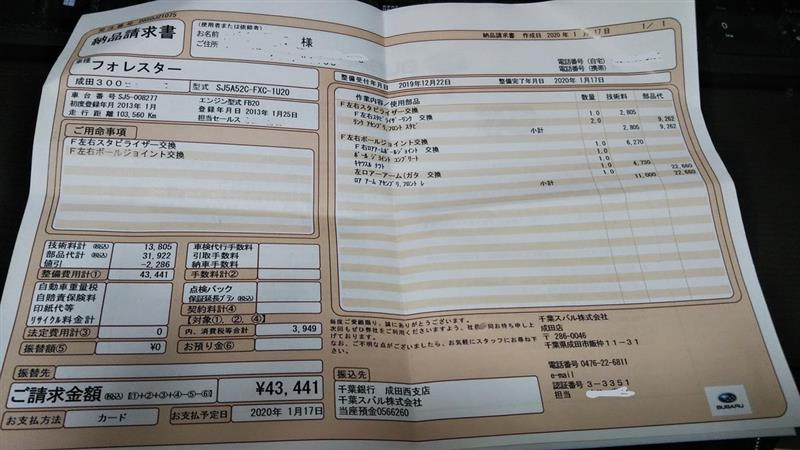 納品請求書
(使用者または依頼者)
お名前 様
ご住所
納品請求書 作成日 2020年 1月17日 1/ 1
電話番号(自宅)
電話番号(携帯)
車種
フォレスター
成田300
型式 SJ5A52C-FXC-1U20
車台番号 SJ5-008277
エンジン型式 FB20
初度登録年月 2013年 1月
登録年月日 2013年 1月25日
走行距離 103,560 Km
担当セールス
整備受付年月日 2019年12月22日 整備完了年月日 2020年 1月17日
ご用命事項
F左右スタビライザー交換
F左右ボールジョイント交換
作業内容/使用部品 数量 技術料 部品代
F左右スタビライザー交換
F左右スタビライザーリンク 交換 1.0 2,805
リンク アセンブリ,フロント スタビ 2.0 9,262
小計 2,805 9,262
F左右ボールジョイント交換
F右ロアアームボールジョイント 交換 1.0 6,270
ボール ジョイント コンプリート 1.0
キヤツスル ナツト 1.0
左ロアーアーム(ガタ 交換 1.0 4,730
ロア アーム アセンブリ,フロント レ 1.0 22,660
小計 11,000 22,660
技術料計 (税込) 13,805
部品代計 (税込) 31,922
値引 -2,286
整備費用計① 43,441
車検代行手数料
引取手数料
納車手数料
手数料計②
自動車重量税
自賠責保険料
印紙代等
リサイクル料金
法定費用計③ 0
点検パック
保証延長プラン (税込)
契約料計④
【対象①、②、④】
内、消費税等合計 3,949
振替額⑤ ¥0
お預り金⑥
振替先
ご請求金額 【①+②+③+④-⑤-⑥】 ¥43,441
お支払方法 カード お支払予定日 2020年 1月17日
毎度ご愛顧賜り、誠にありがとうございます。
次回もぜひ弊社をご利用くださいますよう、社員一同お待ち申し上
げております。
なお、ご不明な点がございましたら、お気軽にスタッフにお尋ね下
さい。
振込先
千葉銀行 成田西支店
千葉スバル株式会社
当座預金0566260
千葉スバル株式会社
成田店
〒 286-0046
千葉県成田市飯仲11-31
電話番号 0476-22-6811
e-mail
認証番号 3-3351
担当
SUBARU